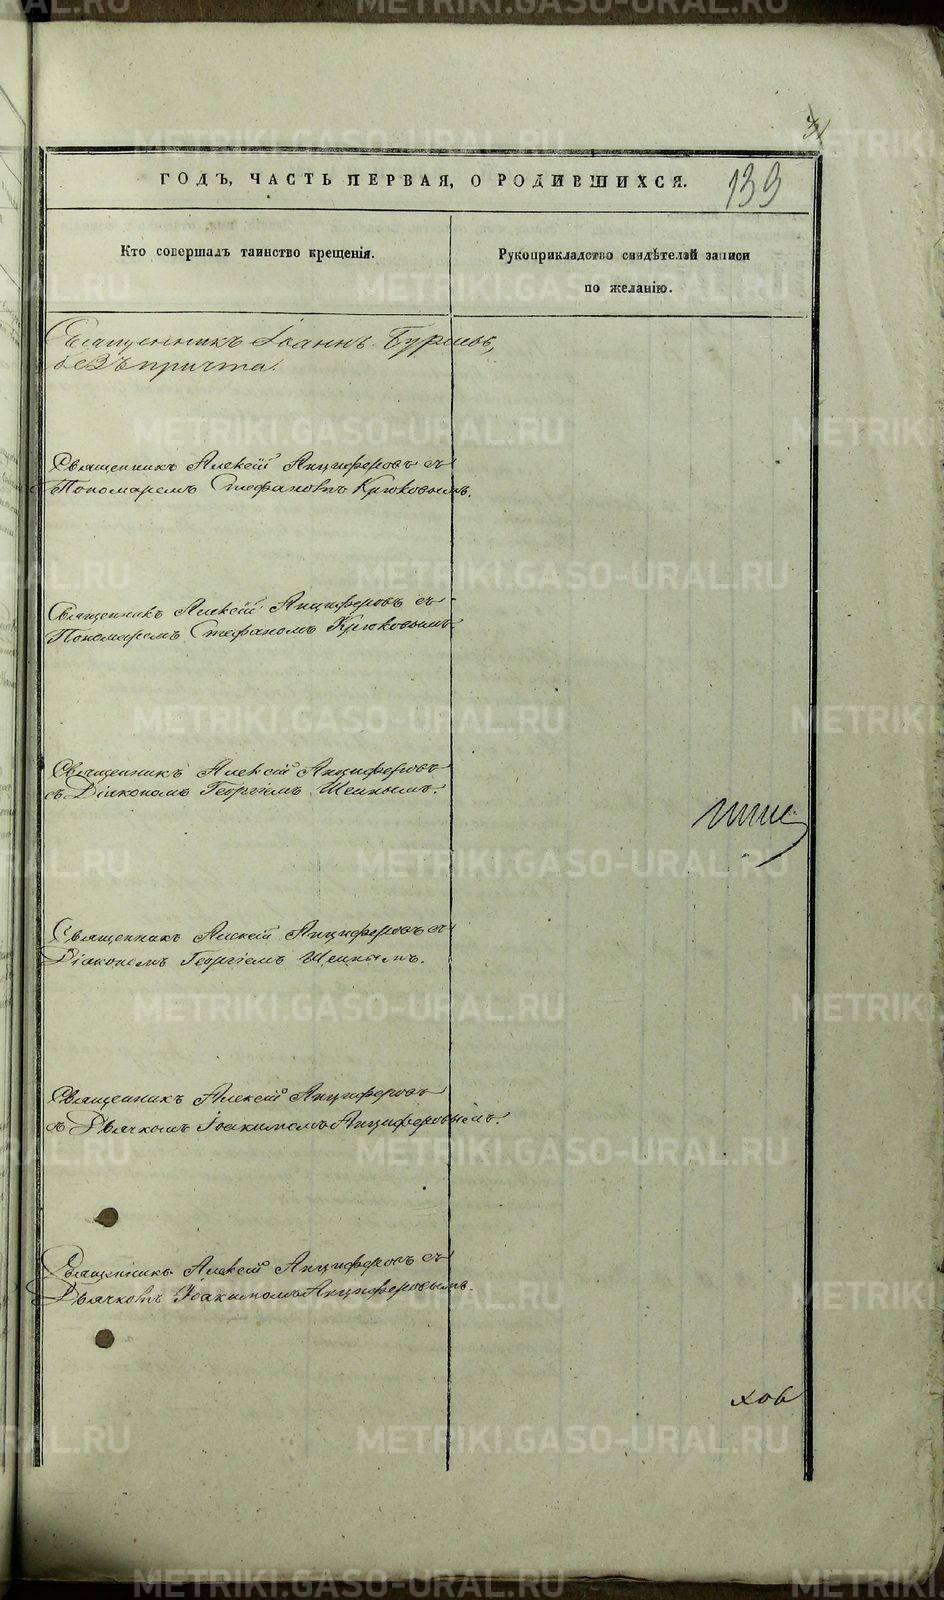 31
ГОДЪ, ЧАСТЬ ПЕРВАЯ, О РОДИВШИХСЯ.
139
Кто совершалъ таинство крещенія.
Рукоприкладство свидѣтелей записи
по желанію.
Священникъ Іоаннъ
безъ причта.
Священникъ Алексій Анциферовъ съ
Пономаремъ Стефаномъ Крюковымъ.
Священникъ Алексій Анциферовъ съ
Пономаремъ Стефаномъ Крюковымъ.
Священникъ Алексій Анциферовъ
съ Діакономъ Георгіемъ
Священникъ Алексій Анциферовъ съ
Діакономъ Георгіемъ
Священникъ Алексій Анциферовъ
съ Дьячкомъ Іоакимомъ Анциферовымъ.
Священникъ Алексій Анциферовъ съ
Дьячкомъ Іоакимомъ Анциферовымъ.
ховъ
METRIKI.GASO-URAL.RU